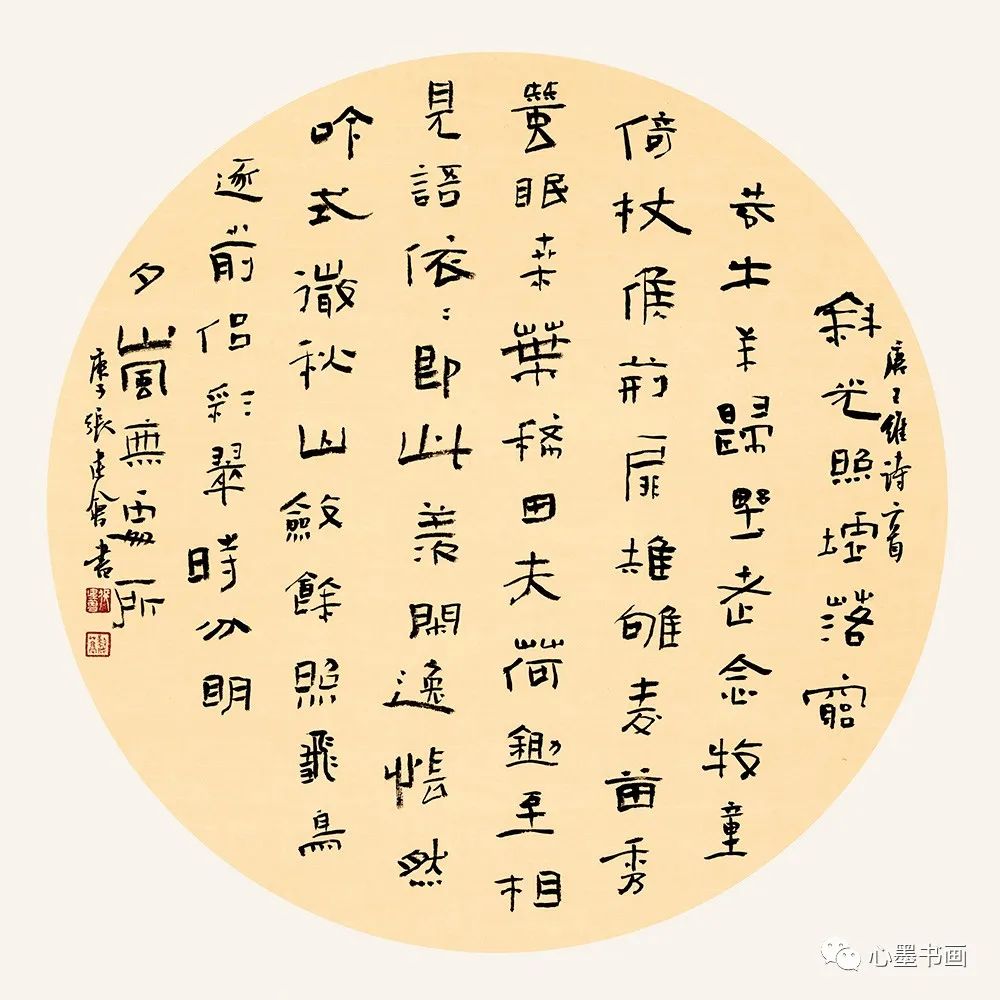 唐王維詩二首
斜光照墟落窮
巷牛羊歸野老念牧童
倚杖候荊扉雉雊麥苗秀
蠶眠桑葉稀田夫荷鋤至相
見語依〻即此羨閑逸悵然
吟式微秋山斂餘照飛鳥
逐前侶彩翠時分明
夕嵐無處所
庚子張建會書
心墨书画